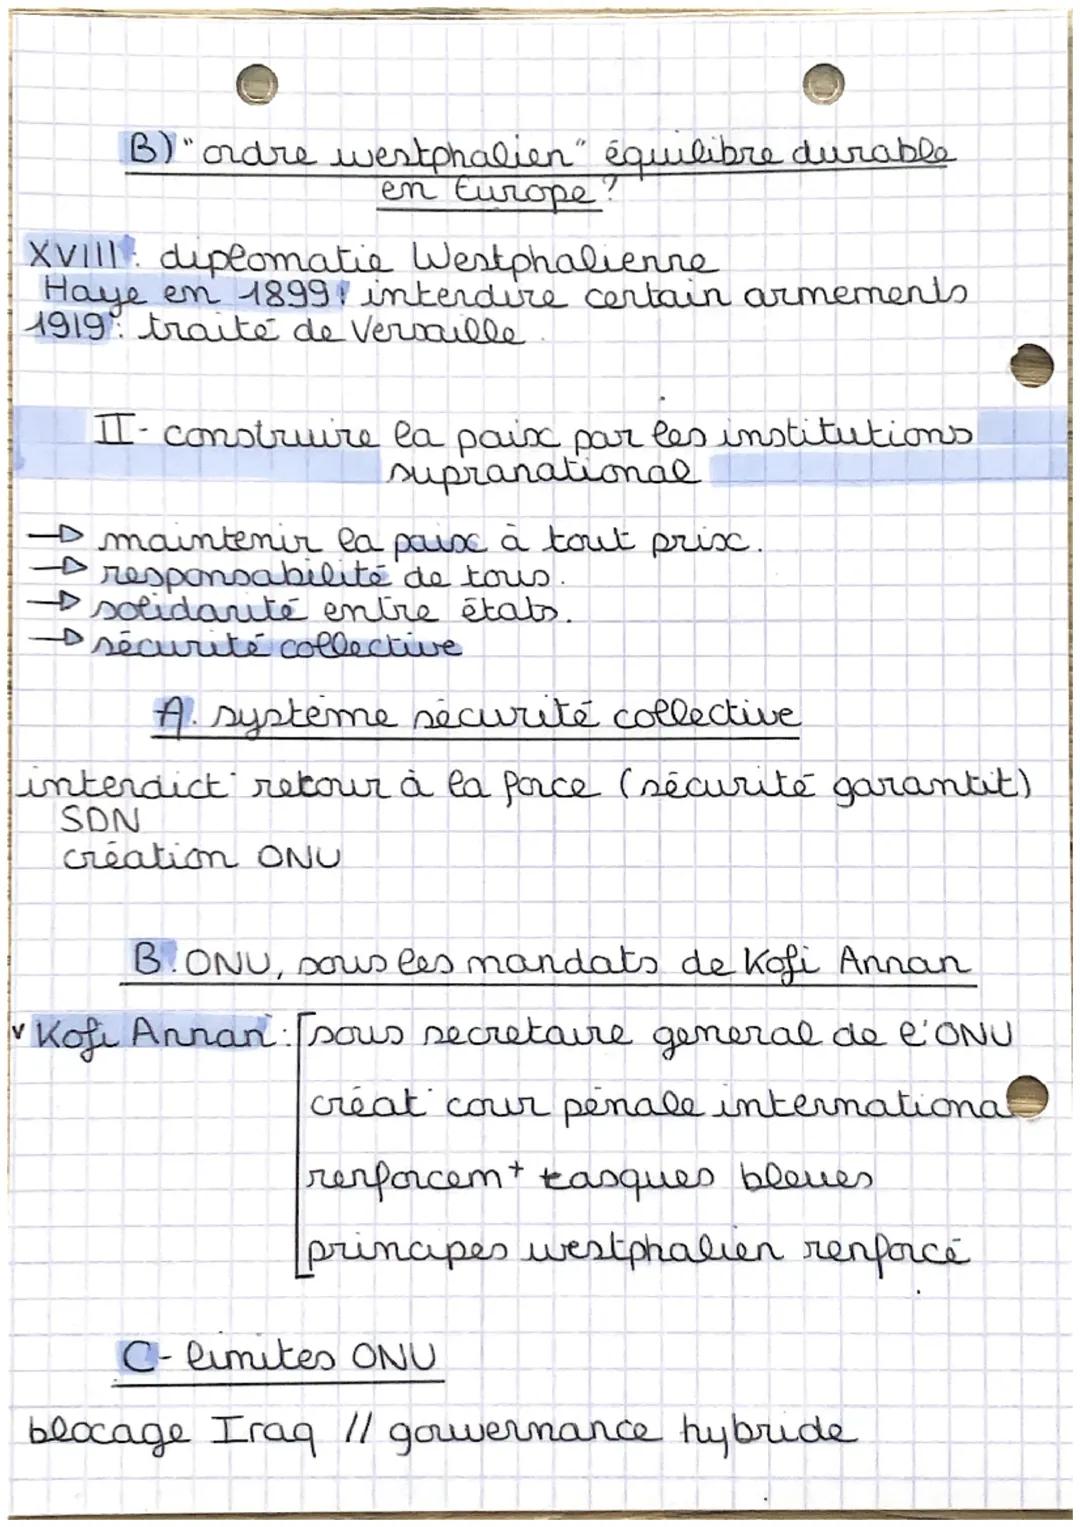 B) "ordre westphalien" équilibre durable
en Europe?
XVIII: diplomatie Westphalienne
Haye en 1899: interdire certain armements
1919: traité de Versaille.
II- construire la paix par les institutions
supranational
→ maintenir la paix à tout prix.
→ responsabilité de tous.
→ solidarité entre états.
→ sécurité collective
A. système sécurité collective
interdict° retour à la force (sécurité garantit)
SDN
création ONU
B. ONU, sous les mandats de Kofi Annan
v Kofi Annan: sous secretaire general de l'ONU
créat° cour pénale internationa
renforcemt casques bleues
principes westphalien renforcé
C- limites ONU
blocage Iraq // gouvernance hybride